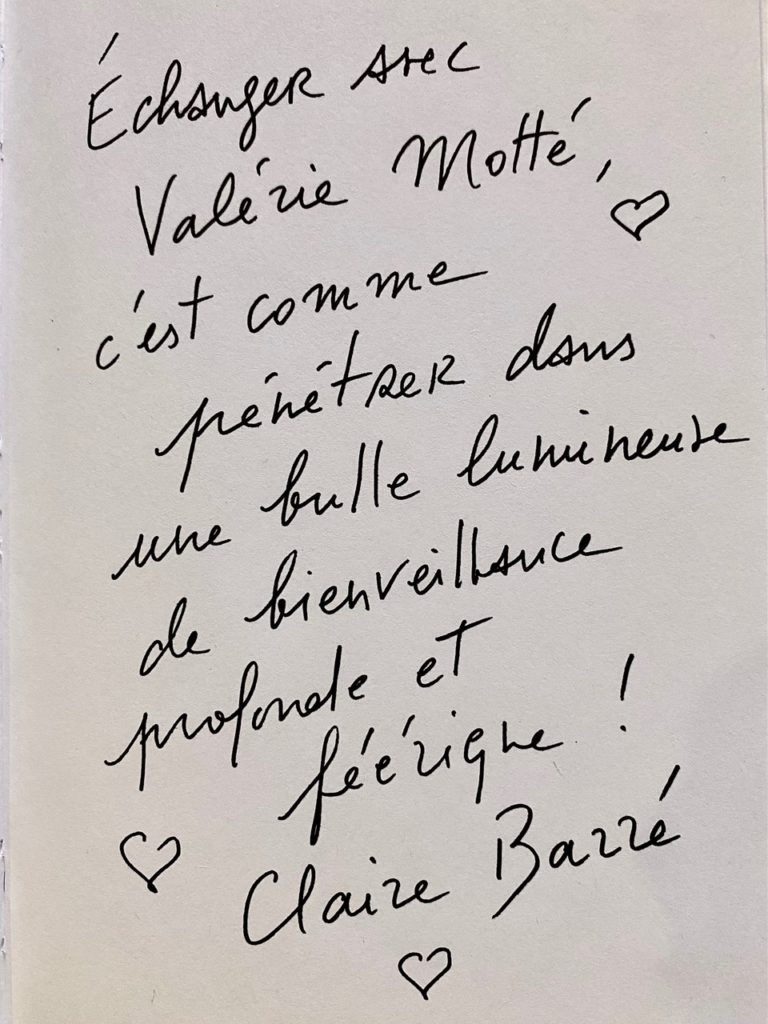 Échanger avec
Valérie Motté,
c'est comme
pénétrer dans
une bulle lumineuse
de bienveillance
profonde et
féérique !
Claire Barré